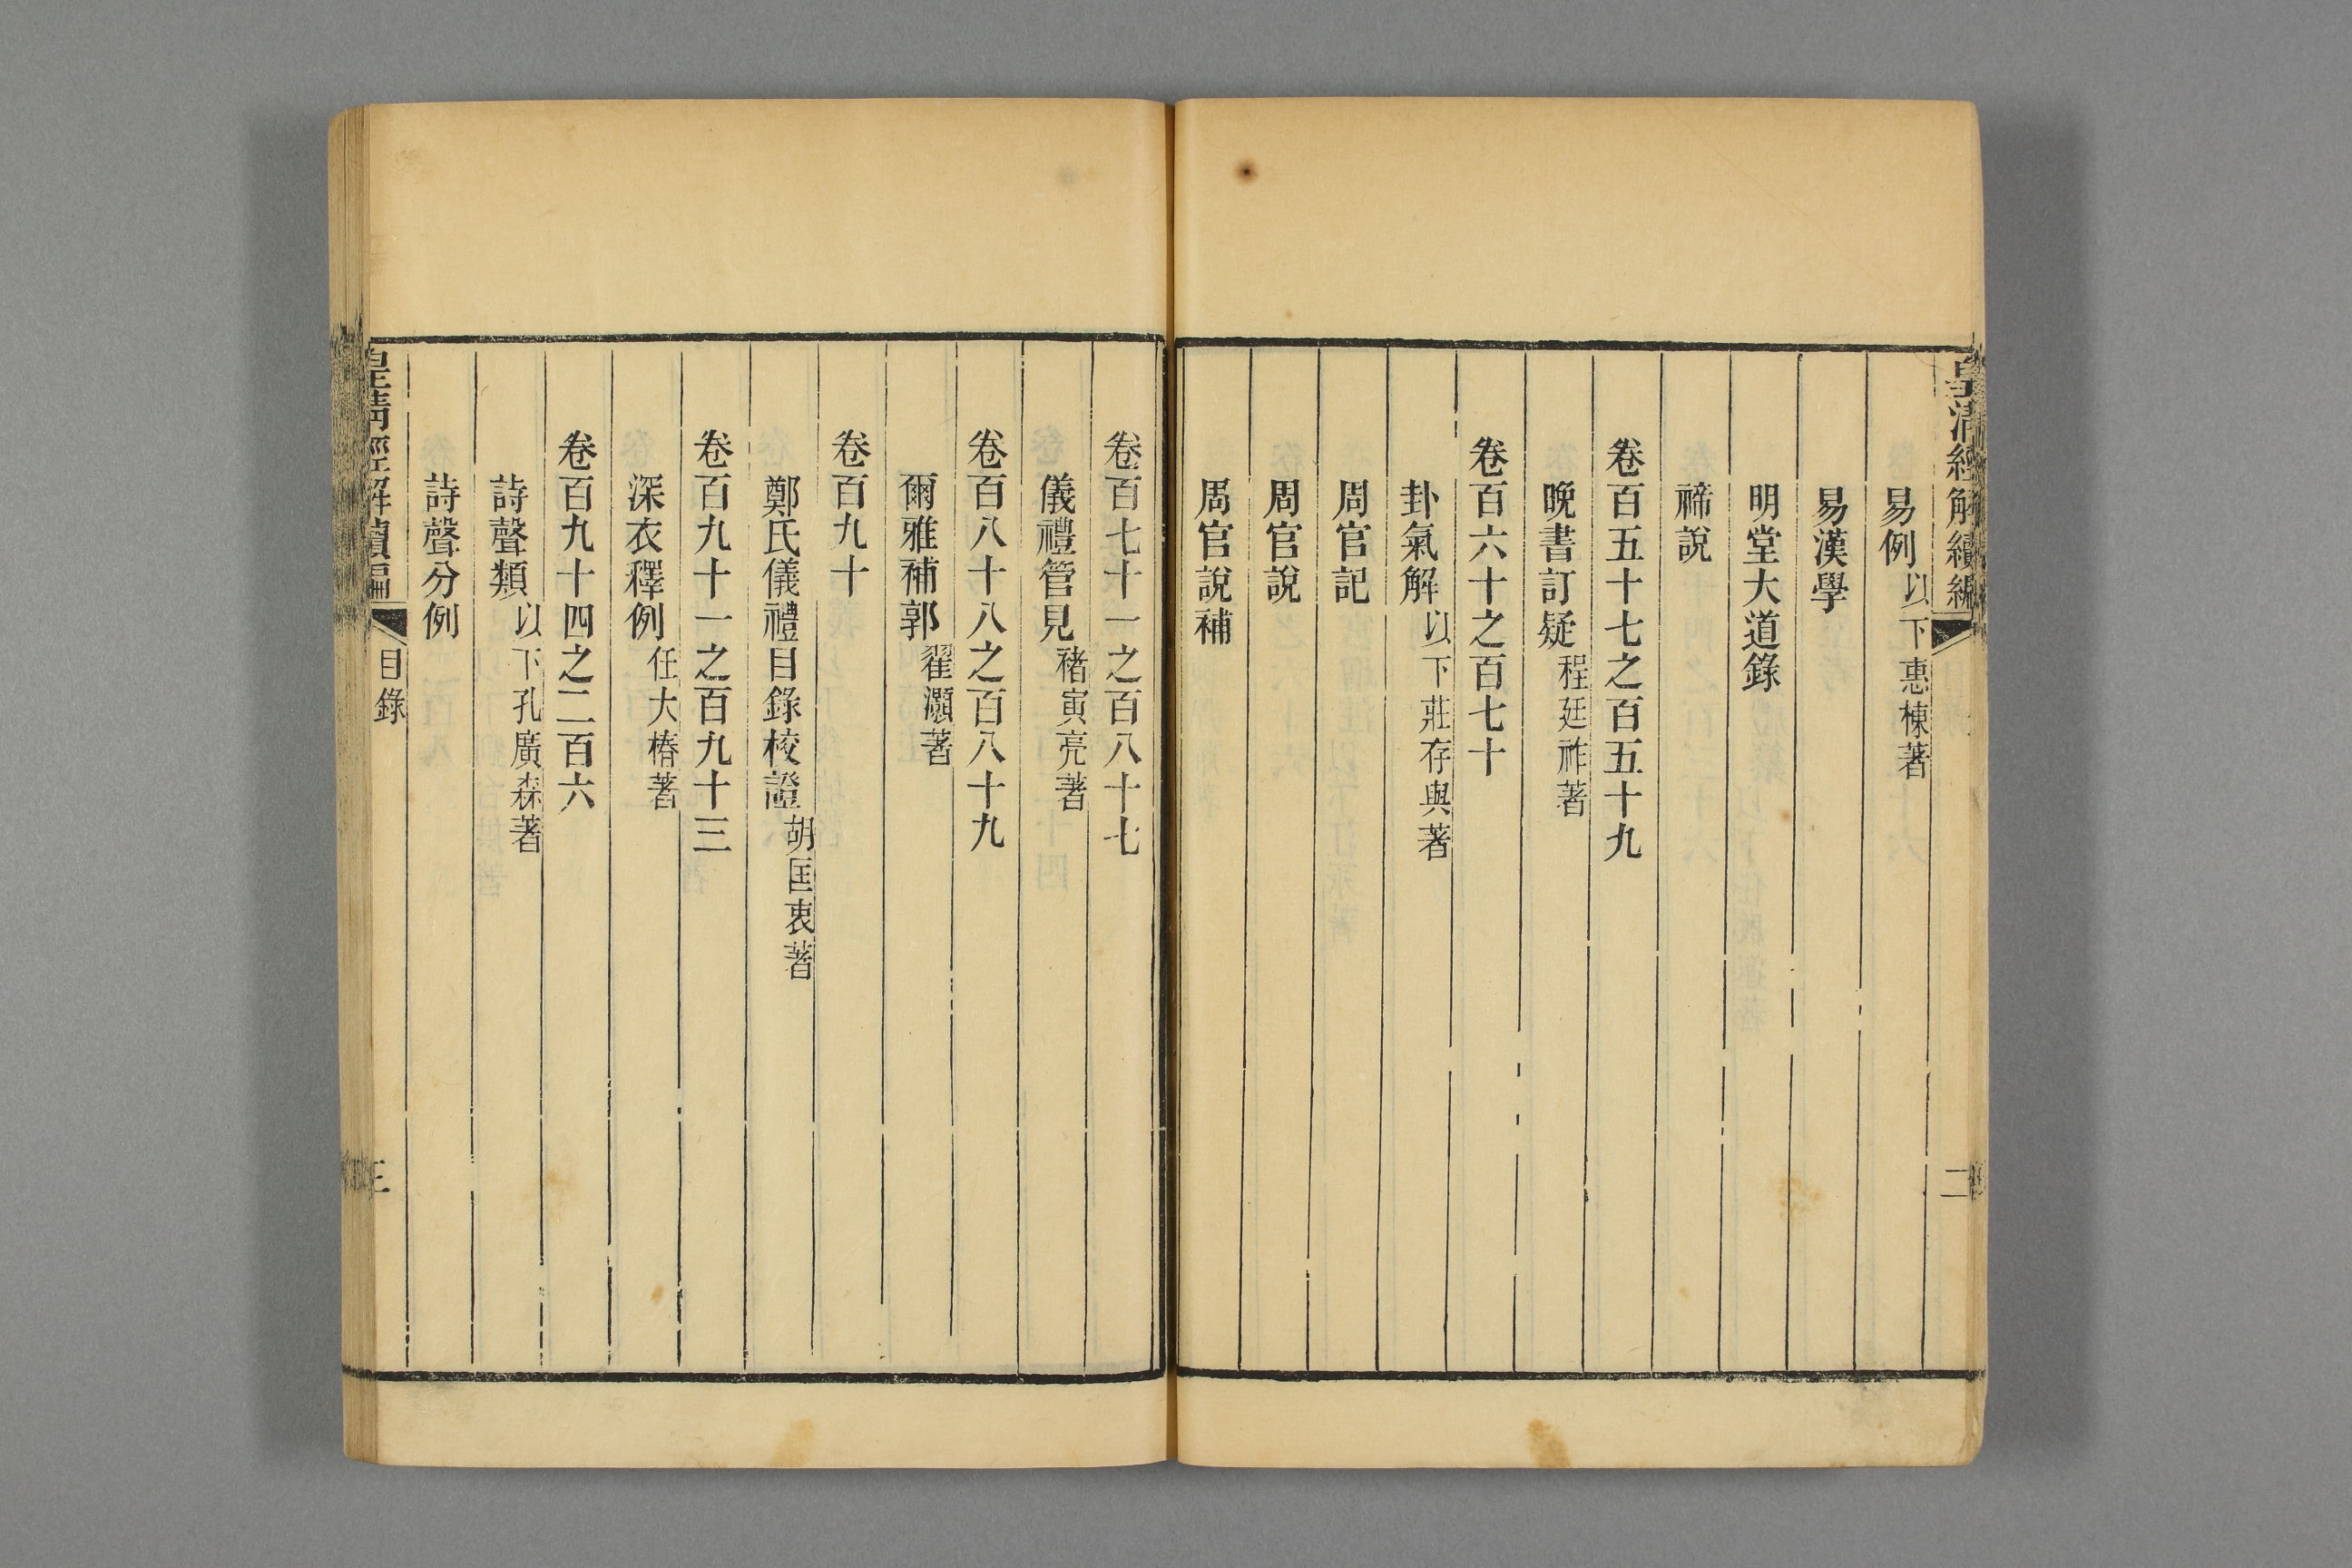 皇清經解續編
二
易例 以下惠棟著
易漢學
明堂大道錄
禘說
卷百五十七之百五十九
晚書訂疑 程廷祚著
卷百六十之百七十
卦氣解 以下莊存與著
周官記
周官說
周官說補
卷百七十一之百八十七
儀禮管見 褚寅亮著
卷百八十八之百八十九
爾雅補郭 翟灝著
卷百九十
鄭氏儀禮目錄校證 胡匡衷著
卷百九十一之百九十三
深衣釋例 任大椿著
卷百九十四之二百六
詩聲類 以下孔廣森著
詩聲分例
皇清經解續編 目錄
三